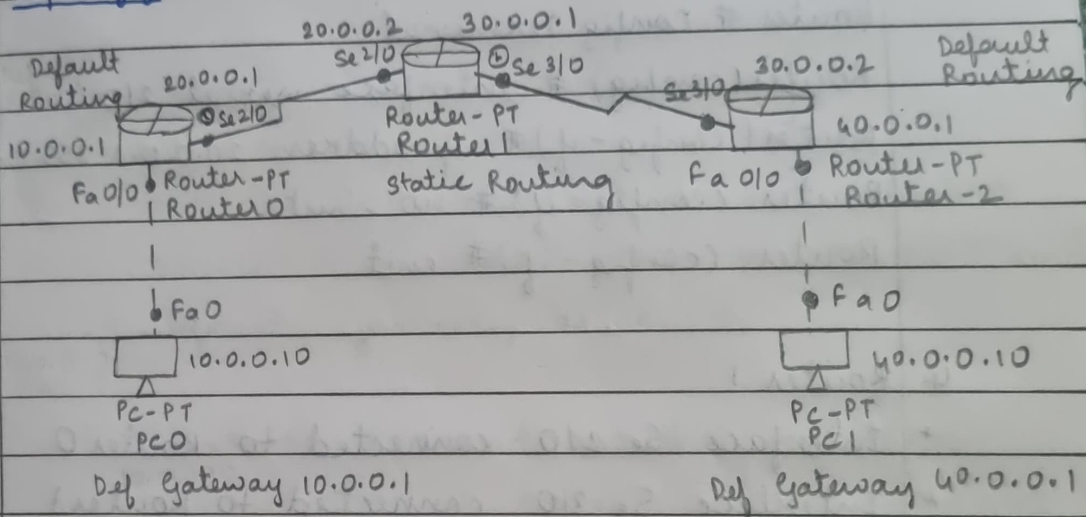 20.0.0.2 30.0.0.1
Default Routing
20.0.0.1
Se2/0
Se2/0
Se3/0
Se3/0
30.0.0.2
Default Routing
10.0.0.1
Router-PT
Router1
Static Routing
40.0.0.1
Fa0/0
Router-PT
Router0
Fa 0/0
Router-PT
Router-2
Fa0
Fa0
10.0.0.10
40.0.0.10
PC-PT
PC0
PC-PT
PC1
Def Gateway 10.0.0.1
Def Gateway 40.0.0.1